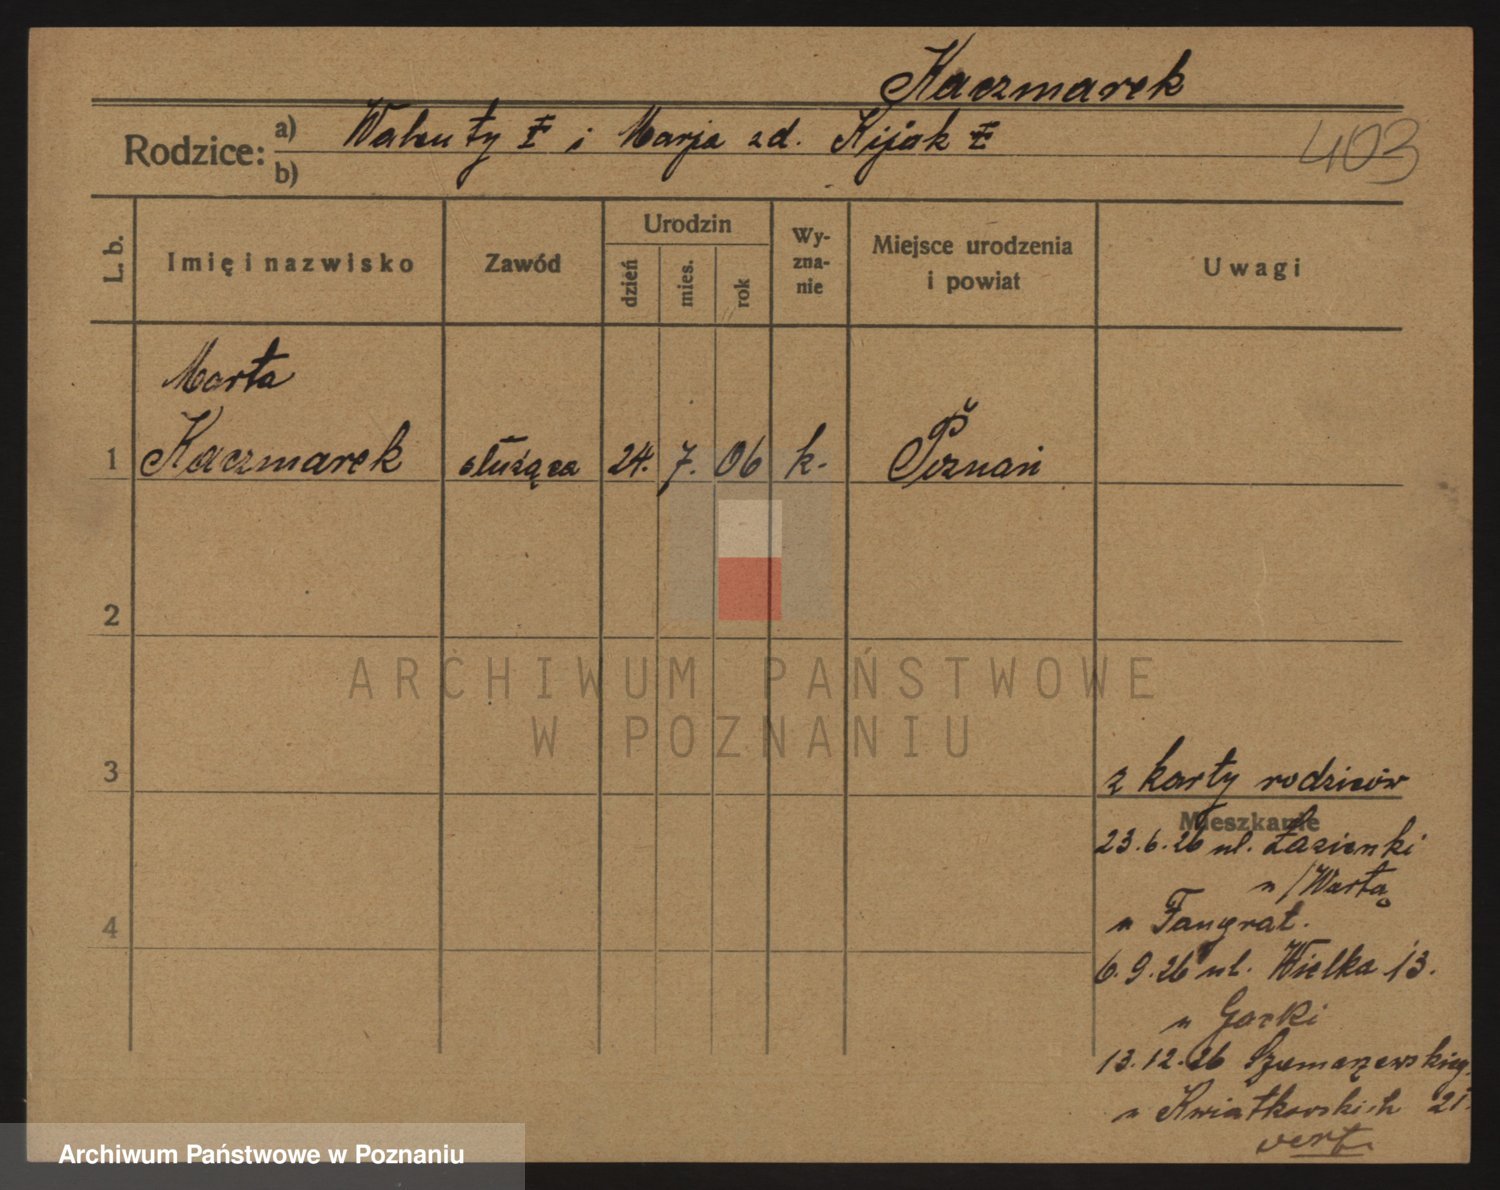 Kaczmarek
Rodzice: a) Walenty i Marja zd. Kijak
b)
403
L. b.
Imię i nazwisko
Zawód
Urodzin
dzień
mies.
rok
Wy-
zna-
nie
Miejsce urodzenia
i powiat
Uwagi
Marta
1 Kaczmarek służąca 24. 7. 06 k. Poznań
2
3
4
z karty rodziców
Mieszkanie
23.6.26 ul. Łazienki
n/Wartą
u
6.9.26 ul. Wielka 13.
u
13.12.26
u Kwiatkowskich 21.
vert.
ARCHIWUM PAŃSTWOWE
W POZNANIU
Archiwum Państwowe w Poznaniu